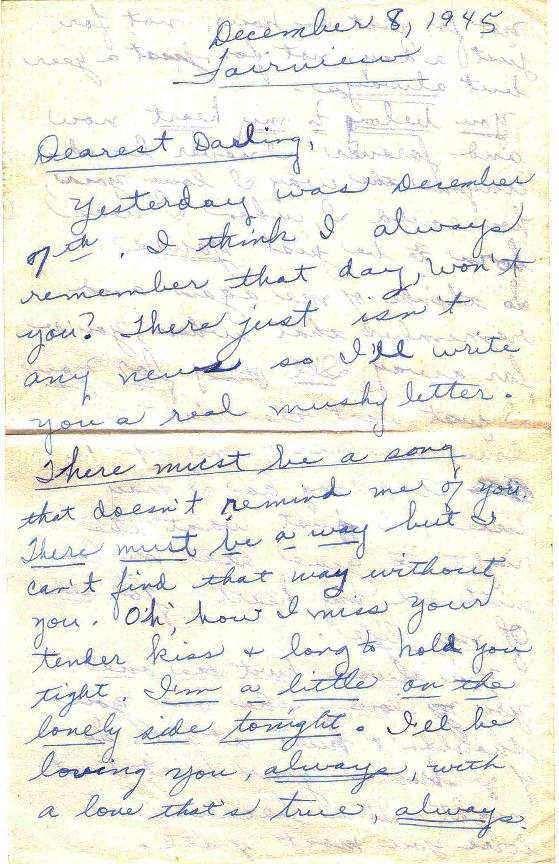 December 8, 1945
Fairview
Dearest Darling,
Yesterday was December
7th. I think I always
remember that day, won't
you? There just isn't
any news so I'll write
you a real mushy letter.
There must be a song
that doesn't remind me of you.
There must be a way but I
can't find that way without
you. Oh, how I miss your
tender kiss & long to hold you
tight. I'm a little on the
lonely side tonight. I'll be
loving you, always, with
a love that's true, always.